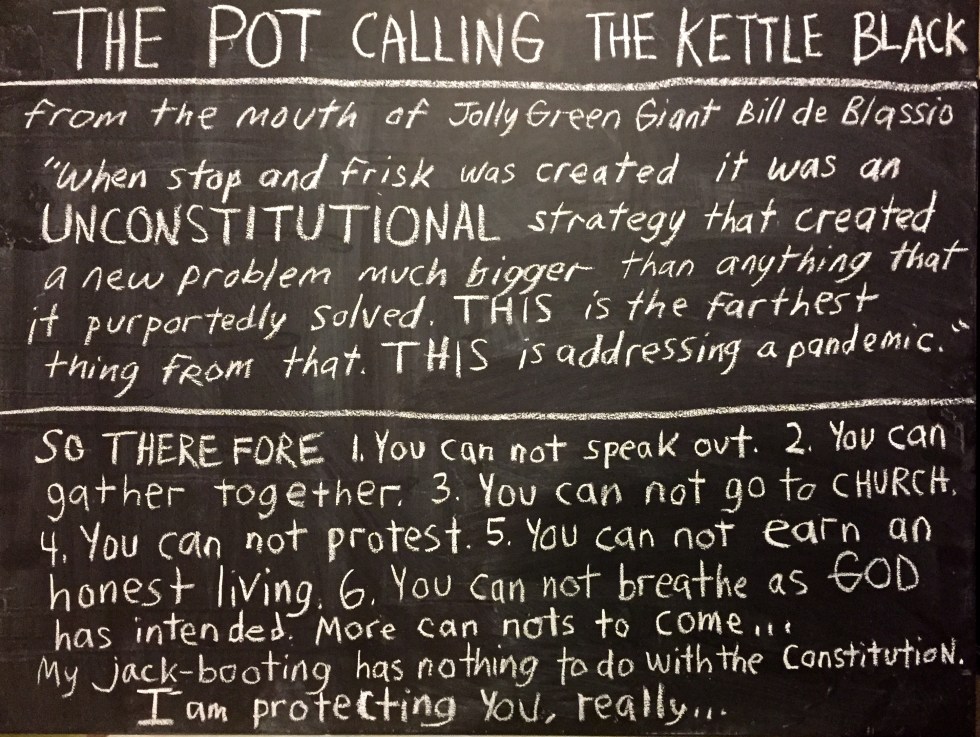 THE POT CALLING THE KETTLE BLACK
from the mouth of Jolly Green Giant Bill de Blassio
"When stop and frisk was created it was an
UNCONSTITUTIONAL strategy that created
a new problem much bigger than anything that
it purportedly solved. THIS is the farthest
thing from that. THIS is addressing a pandemic."
SO THERE FORE 1. You can not speak out. 2. You can
gather together. 3. You can not go to CHURCH.
4. You can not protest. 5. You can not earn an
honest living. 6. You can not breathe as GOD
has intended. More can nots to come...
My jack-booting has nothing to do with the Constitution.
I am protecting You, really...